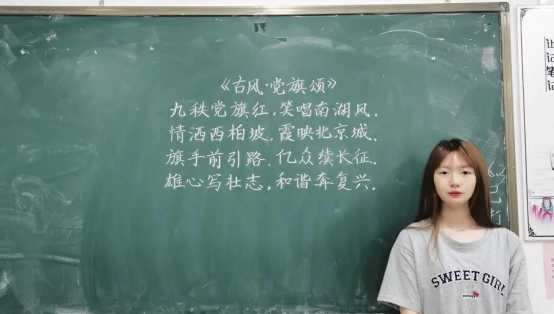 《古风·党旗颂》
九秩党旗红,笑唱南湖风.
情洒西柏坡,霞映北京城.
旗手前引路,亿众续长征.
雄心写壮志,和谐奔复兴.
SWEET GIRL